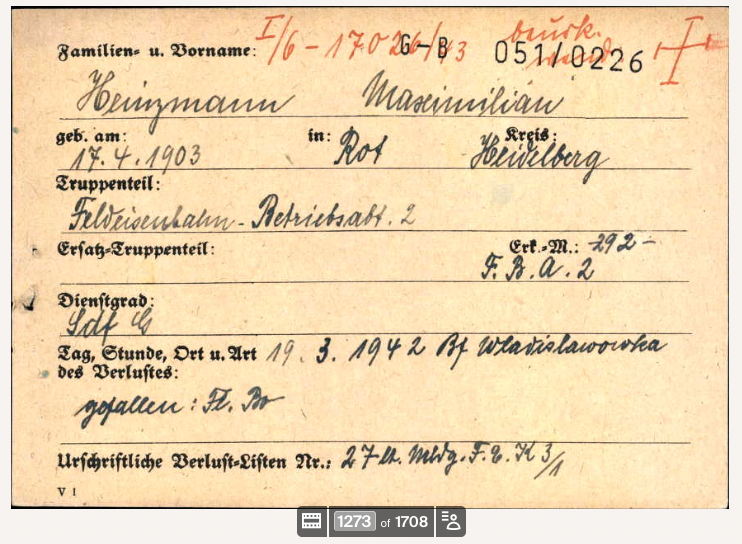 Familien= u. Vorname: I/6 – 17026/43 G–B 051/0226
beurk.
Heinzmann Maximilian
geb. am: in: Kreis:
17.4.1903 Rot Heidelberg
Truppenteil:
Feldeisenbahn-Betriebsabt. 2
Ersatz=Truppenteil: Erk.=M.: -292-
F.B.A.2
Dienstgrad:
Sdf G
Tag, Stunde, Ort u. Art 19. 3. 1942 Bf Wladislawowka
des Verlustes:
gefallen: Fl. Bo
Urschriftliche Verlust=Listen Nr.: 27 lt. Mldg. F.E.K 3/1
V 1
1273 of 1708